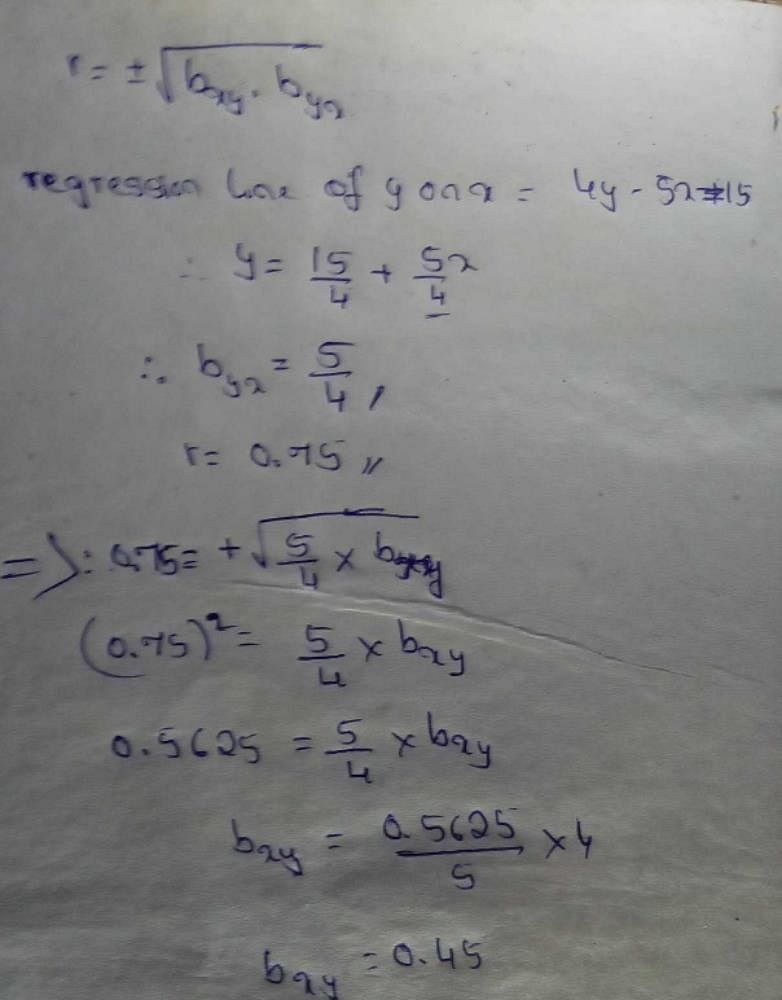 r = ±√(bxy . byx)
regression line of y on x = 4y - 5x = 15
∴ y = 15/4 + 5x/4
∴ byx = 5/4,
r = 0.75 //
=> : 0.75 = +√(5/4 × bxy)
(0.75)² = 5/4 × bxy
0.5625 = 5/4 × bxy
bxy = 0.5625/5 × 4
bxy = 0.45